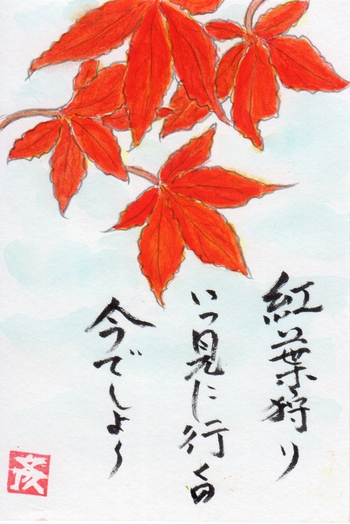 紅葉狩り
いつ見に行くの
今でしょ～
彦